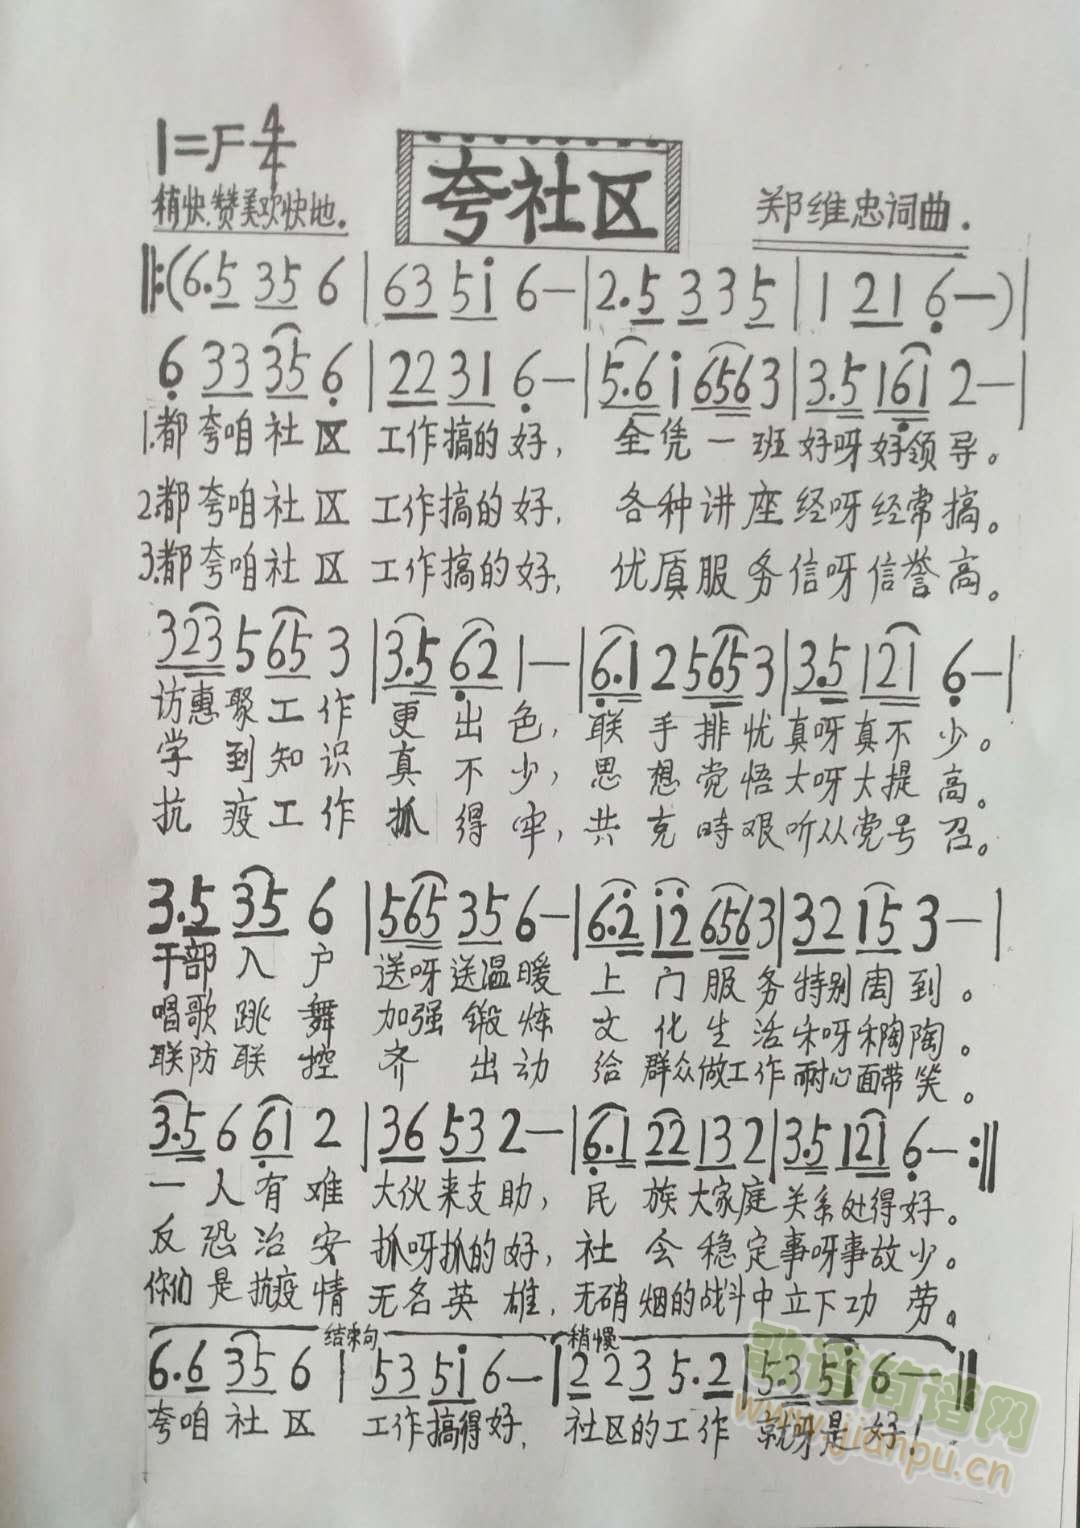 1=F 4/4
夸社区
稍快.赞美欢快地.
郑维忠词曲.
‖:(6.5 35 6 | 63 5i 6— | 2.5 3 3 5 | 1 21 6—) |
6 33 35 6 | 22 31 6— | 5.6 i 656 3 | 3.5 161 2— |
1.都夸咱社区 工作搞的好, 全凭一班好呀好领导。
2.都夸咱社区 工作搞的好, 各种讲座经呀经常搞。
3.都夸咱社区 工作搞的好, 优质服务信呀信誉高。
323 5 65 3 | 3.5 62 1— | 6.1 2 565 3 | 3.5 121 6— |
访惠聚工作 更出色, 联手排忧真呀真不少。
学到知识真不少, 思想觉悟大呀大提高。
抗疫工作抓得牢, 共克時艰听从党号召。
3.5 35 6 | 565 35 6— | 6.2 i2 656 3 | 32 15 3— |
干部入户 送呀送温暖 上门服务特别周到。
唱歌跳舞 加强锻炼 文化生活乐呀乐陶陶。
联防联控 齐出动 给群众做工作耐心面带笑。
3.5 6 61 2 | 36 53 2— | 6.1 22 13 2 | 3.5 121 6— :‖
一人有难 大伙来支助, 民族大家庭关系处得好。
反恐治安 抓呀抓的好, 社会稳定事呀事故少。
你们是抗疫情 无名英雄, 无硝烟的战斗中立下功劳。
结束句 稍慢
6.6 35 6 | 53 5i 6— | 2 2 3 5.2 | 5.3 5i 6— ‖
夸咱社区 工作搞得好, 社区的工作 就呀是好!
歌谱简谱网
www.jianpu.cn